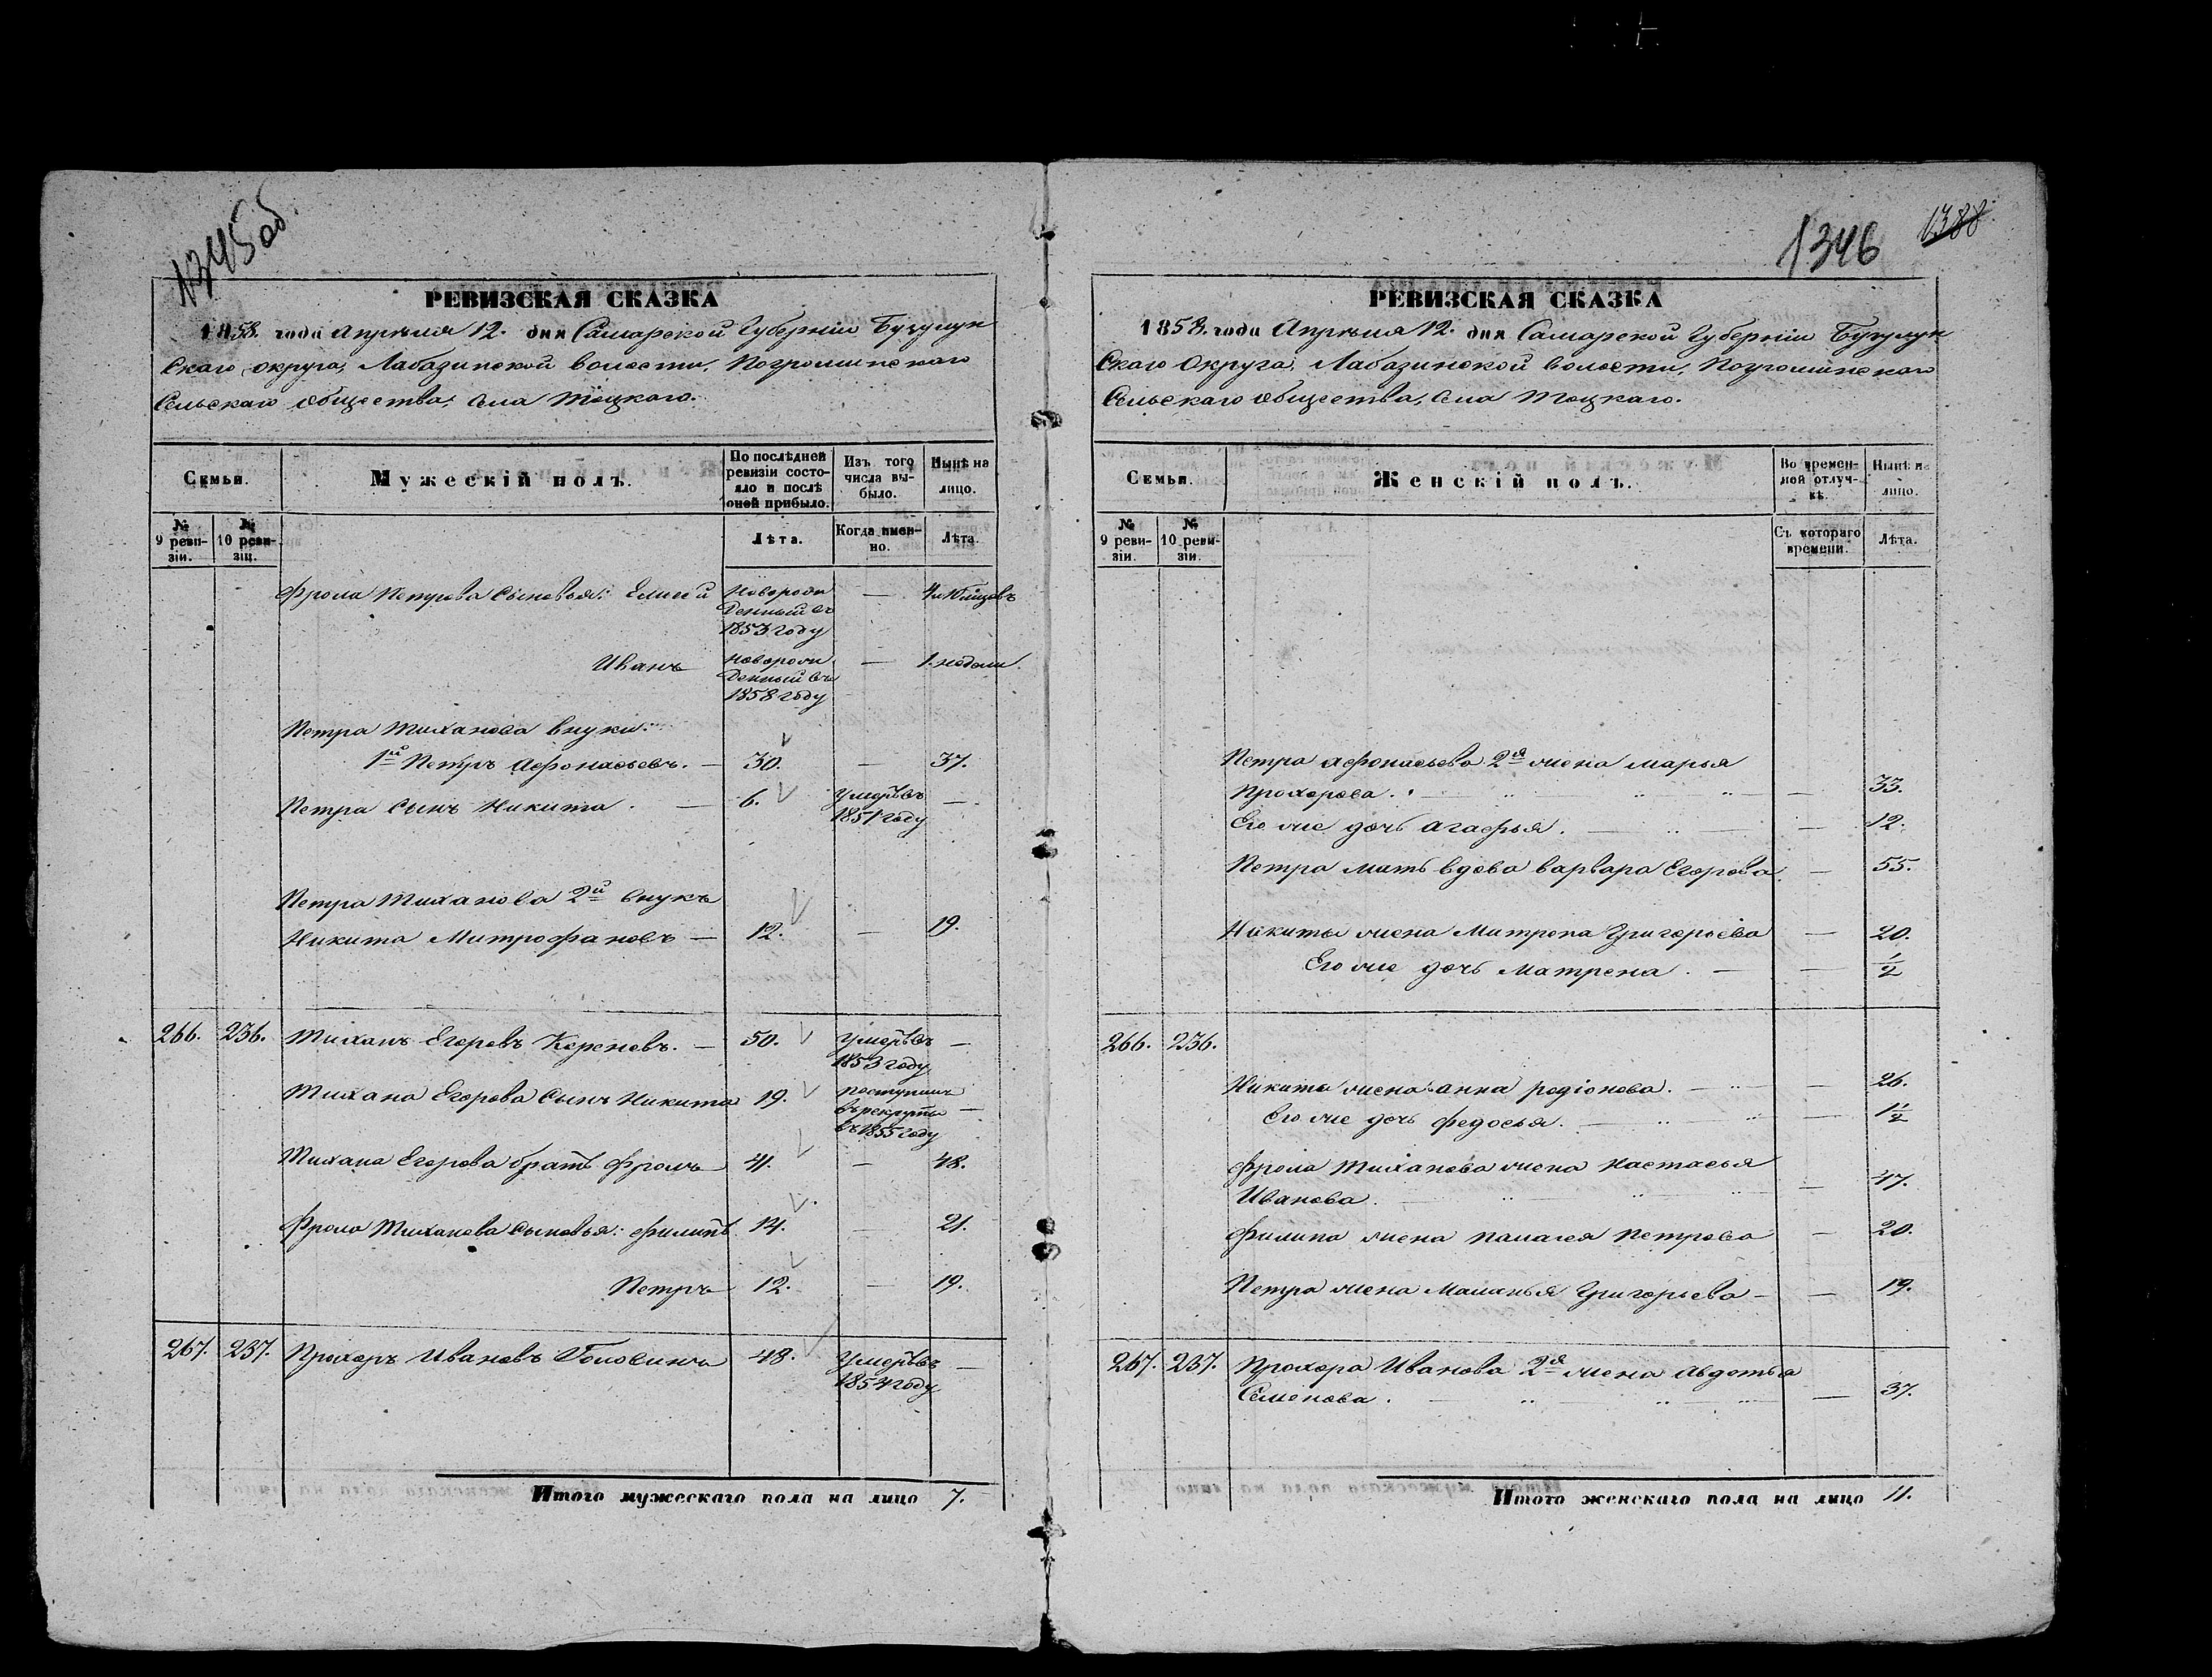 1345об.
РЕВИЗСКАЯ СКАЗКА
1858. года Апрѣля 12. дня Самарской Губерніи Бузулук
скаго округа, Лабазинской волости, Погроминскаго
Сельскаго общества, села Тоцкаго.
Семьи.
Мужескій полъ.
По послѣдней ревизіи состояло и послѣ оной прибыло.
Изъ того числа выбыло.
Нынѣ на лицо.
№ 9 ревизіи.
№ 10 ревизіи.
Лѣта.
Когда именно.
Лѣта.
Фрола Петрова сыновья: Елисей новорожденный въ 1853 году — 4 и 10 мѣсяцовъ
Иванъ новорожденный въ 1858 году — 1. недели.
Петра Тиханова внуки:
1й Петръ Афонасьевъ. — 30. — 37.
Петра сынъ Никита. — 6. Умеръ въ 1851 году —.
Петра Тиханова 2й внукъ
Никита Митрофановъ — 12. — 19.
266. 236. Тиханъ Егоровъ Кореновъ. — 50. Умеръ въ 1853 году —
Тихана Егорова сынъ Никита 19. поступилъ въ рекруты въ 1855 году —
Тихана Егорова братъ Фролъ 41. — 48.
Фрола Тиханова сыновья: Филипъ 14. — 21.
Петръ 12. — 19.
267. 237. Прохоръ Ивановъ Головинъ 48. Умеръ въ 1854 году —
Итого мужескаго пола на лицо 7.
1346 1388
РЕВИЗСКАЯ СКАЗКА
1858. года Апрѣля 12. дня Самарской Губерніи Бузулук
скаго Округа, Лабазинской волости, Погроминскаго
Сельскаго общества, села Тоцкаго.
Семьи.
Женскій полъ.
Во временной отлучкѣ.
Нынѣ на лицо.
№ 9 ревизіи.
№ 10 ревизіи.
Съ котораго времени.
Лѣта.
Петра Афонасьева 2я жена Марья
Прохорова. — 33.
Его же дочь Агафья. — 12.
Петра мать вдова Варвара Егорова. — 55.
Никиты жена Матрена Григорьева — 20.
Его же дочь Матрена. — 1/2
266. 236.
Никиты жена Анна Родіонова. — 26.
Его же дочь Федосья. — 1 1/2
Фрола Тиханова жена Настасья
Иванова. — 47.
Филипа жена Палагея Петрова — 20.
Петра жена Маланья Григорьева — 19.
267. 237. Прохора Иванова 2я жена Авдотья
Семенова. — 37.
Итого женскаго пола на лицо 11.